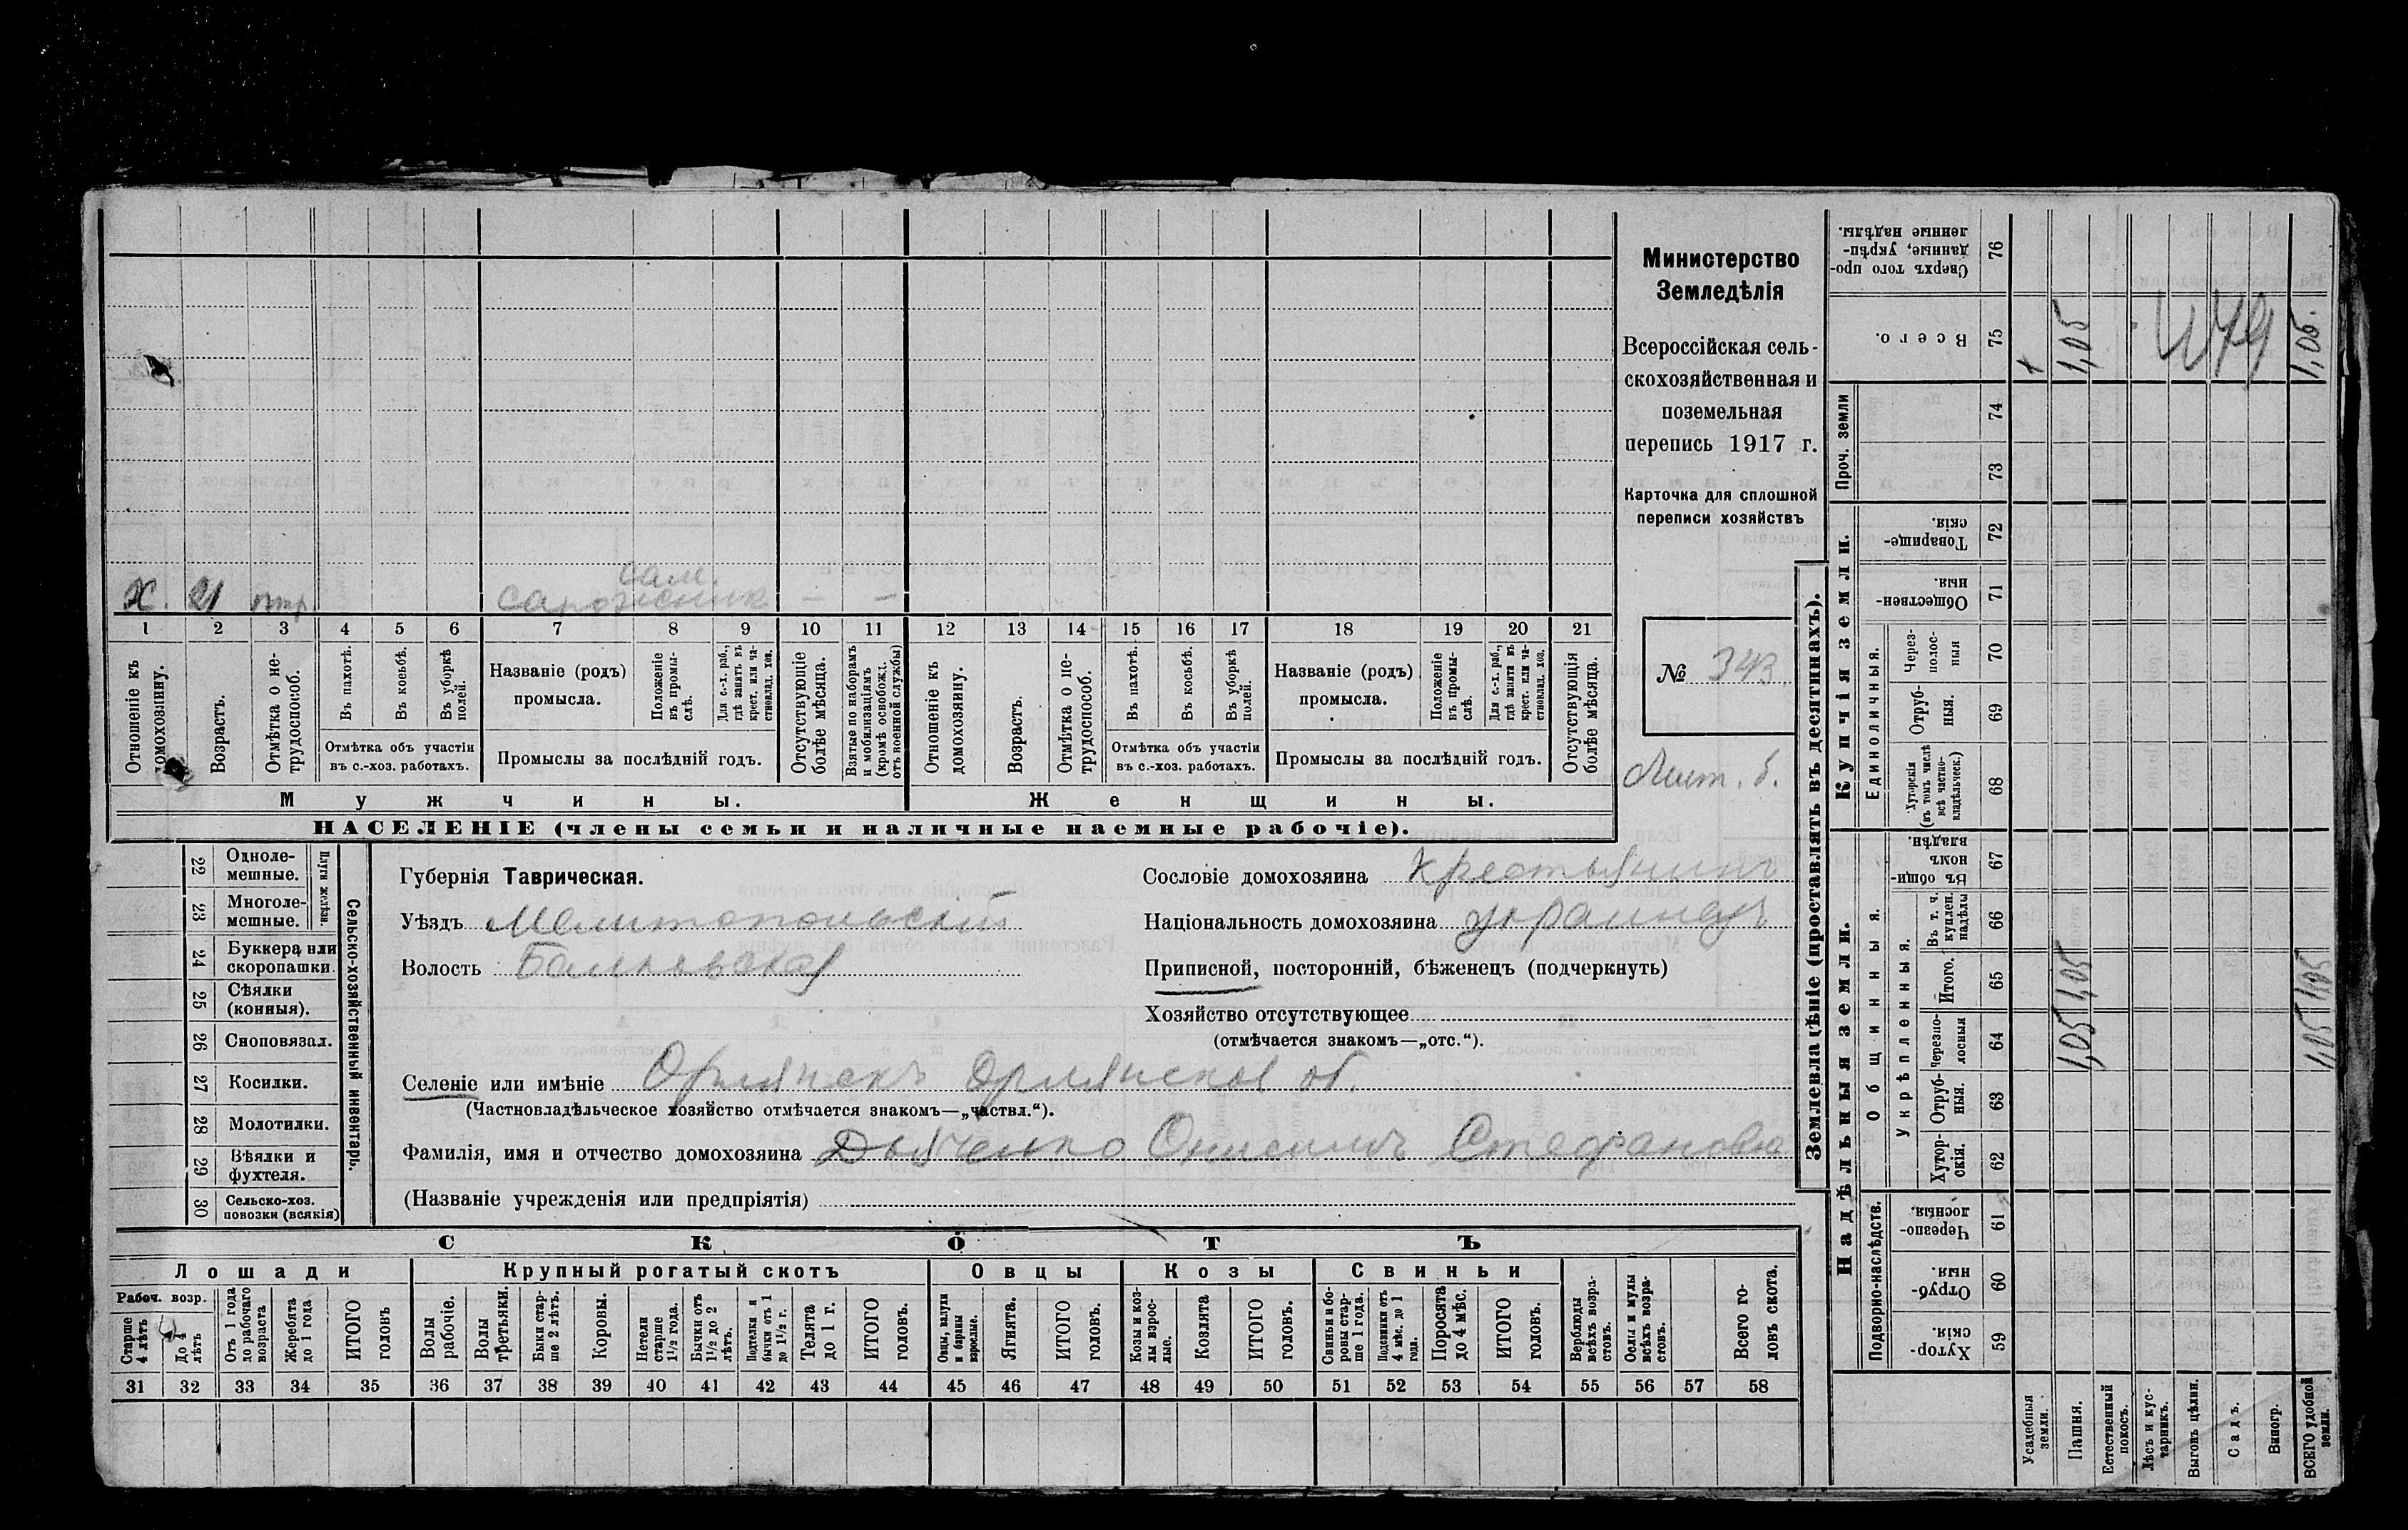 Министерство
Земледѣлія
Всероссійская сель-
скохозяйственная и
поземельная
перепись 1917 г.
Карточка для сплошной
переписи хозяйствъ
№ 343
Лит. б.
Х. 21
сам.
сапожник — —
1 2 3 4 5 6 7 8 9 10 11 12 13 14 15 16 17 18 19 20 21
Отношеніе къ домохозяину.
Возрастъ.
Отмѣтка о не-трудоспособ.
Въ пахотѣ.
Въ косьбѣ.
Въ уборкѣ полей.
Отмѣтка объ участіи
въ с.-хоз. работахъ.
Названіе (родъ)
промысла.
Положеніе въ промы-слѣ.
Для с.-х. раб., гдѣ занятъ въ крест. или ча-стновлад. хоз.
Промыслы за послѣдній годъ.
Отсутствующіе болѣе мѣсяца.
Взятые по наборамъ и мобилизаціямъ (кромѣ освобожд. отъ военной службы)
Отношеніе къ домохозяину.
Возрастъ.
Отмѣтка о не-трудоспособ.
Въ пахотѣ.
Въ косьбѣ.
Въ уборкѣ полей.
Отмѣтка объ участіи
въ с.-хоз. работахъ.
Названіе (родъ)
промысла.
Положеніе въ промы-слѣ.
Для с.-х. раб., гдѣ занята въ крест. или ча-стновлад. хоз.
Промыслы за послѣдній годъ.
Отсутствующія болѣе мѣсяца.
Мужчины.
Женщины.
НАСЕЛЕНІЕ (члены семьи и наличные наемные рабочіе).
Сельско-хозяйственный инвентарь.
Плуги желѣзн.
22 Одноле-мешные.
23 Многоле-мешные.
24 Буккера или скоропашки.
25 Сѣялки (конныя).
26 Сноповязал.
27 Косилки.
28 Молотилки.
29 Вѣялки и фухтеля.
30 Сельско-хоз. повозки (всякія)
Губернія Таврическая.
Уѣздъ Мелитопольскій
Волость Балковская
Сословіе домохозяина Крестьянинъ
Національность домохозяина украинецъ
Приписной, посторонній, бѣженецъ (подчеркнуть)
Хозяйство отсутствующее
(отмѣчается знакомъ—„отс.“).
Селеніе или имѣніе Орлянскъ Орлянское об.
(Частновладѣльческое хозяйство отмѣчается знакомъ—„частвл.“).
Фамилія, имя и отчество домохозяина Дьяченко Онисимъ Стефановъ
(Названіе учрежденія или предпріятія)
СКОТЪ
Лошади
Рабоч. возр.
Старше 4 лѣтъ
До 4 лѣтъ
Отъ 1 года до рабочаго возраста
Жеребята до 1 года
ИТОГО головъ
Крупный рогатый скотъ
Волы рабочіе.
Волы третьяки.
Быки стар-ше 2 лѣтъ.
Коровы.
Нетели старше 1½ года.
Бычки отъ 1½ до 2 лѣтъ.
Подтелки и бычки отъ 1 до 1½ г.
Телята до 1 г.
ИТОГО головъ.
Овцы
Овцы, валухи и бараны взрослые.
Ягнята.
ИТОГО головъ.
Козы
Козы и коз-лы взрос-лые.
Козлята
ИТОГО головъ.
Свиньи
Свиньи и бо-ровы стар-ше 1 года.
Подсвинки отъ 4 мѣс. до 1 года.
Поросята до 4 мѣс.
ИТОГО головъ.
Верблюды всѣхъ возра-стовъ.
Ослы и мулы всѣхъ возра-стовъ.
Всего го-ловъ скота.
31 32 33 34 35 36 37 38 39 40 41 42 43 44 45 46 47 48 49 50 51 52 53 54 55 56 57 58
Землевладѣніе (проставлять въ десятинахъ).
Надѣльныя земли.
Подворно-наслѣдств.
Хутор-скія. 59
Отруб-ныя. 60
Черезпо-лосныя. 61
Общинныя.
Укрѣпленныя.
Хутор-скія. 62
Отруб-ныя. 63
Черезпо-лосныя 64
Итого. 65
Въ т. ч. куплен. надѣлы 66
Въ общин-номъ владѣн. 67
Купчія земли.
Единоличныя.
Хуторскія (въ томъ числѣ всѣ частно-владѣльческ.) 68
Отруб-ныя. 69
Через-полос-ныя 70
Обществен-ныя. 71
Товарище-скія. 72
Проч. земли
73
74
Всего. 75
Сверхъ того про-данные, укрѣп-ленные надѣлы. 76
Усадебныя земли.
Пашня. 1,05 1,05 1,05
Естественный покосъ.
Лѣсъ и кус-тарникъ.
Выгонъ цѣлин.
Садъ.
Виногр.
ВСЕГО удобной земли. 1,05 1,05 1,05.